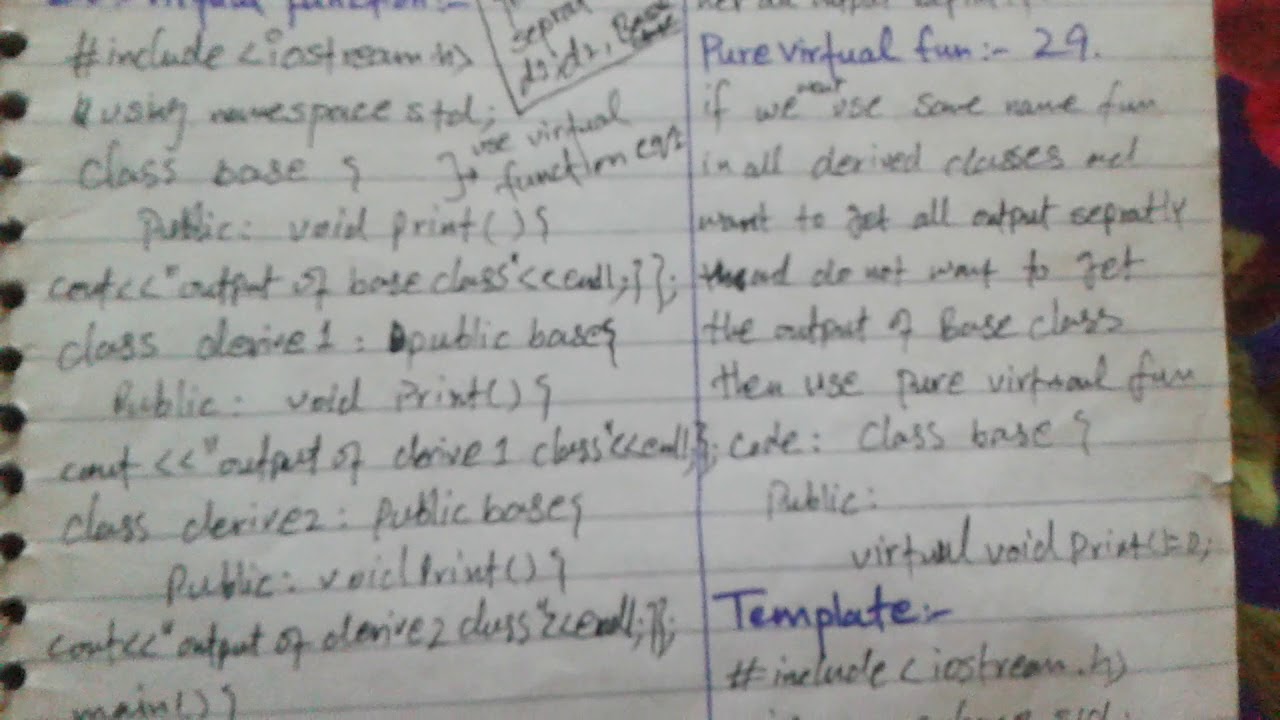 virtual function:-
#include <iostream.h>
using namespace std;
class base {
Public: void print() {
cout<<"output of base class"<<endl;}};
class derive1 : public base{
Public: void Print() {
cout <<"output of derive1 class"<<endl;}};
class derive2: Public base{
Public: void Print() {
cout<<"output of derive2 class"<<endl;}};
main() {
seprat
d1,d2, Base
use virtual
function
Pure virtual fun:- 29.
if we want use same name fun
in all derived classes and
want to get all output sepratly
and do not want to get
the output of Base class
then use pure virtual fun
code: class base {
Public:
virtual void Print()=0;
Template:-
#include <iostream.h>